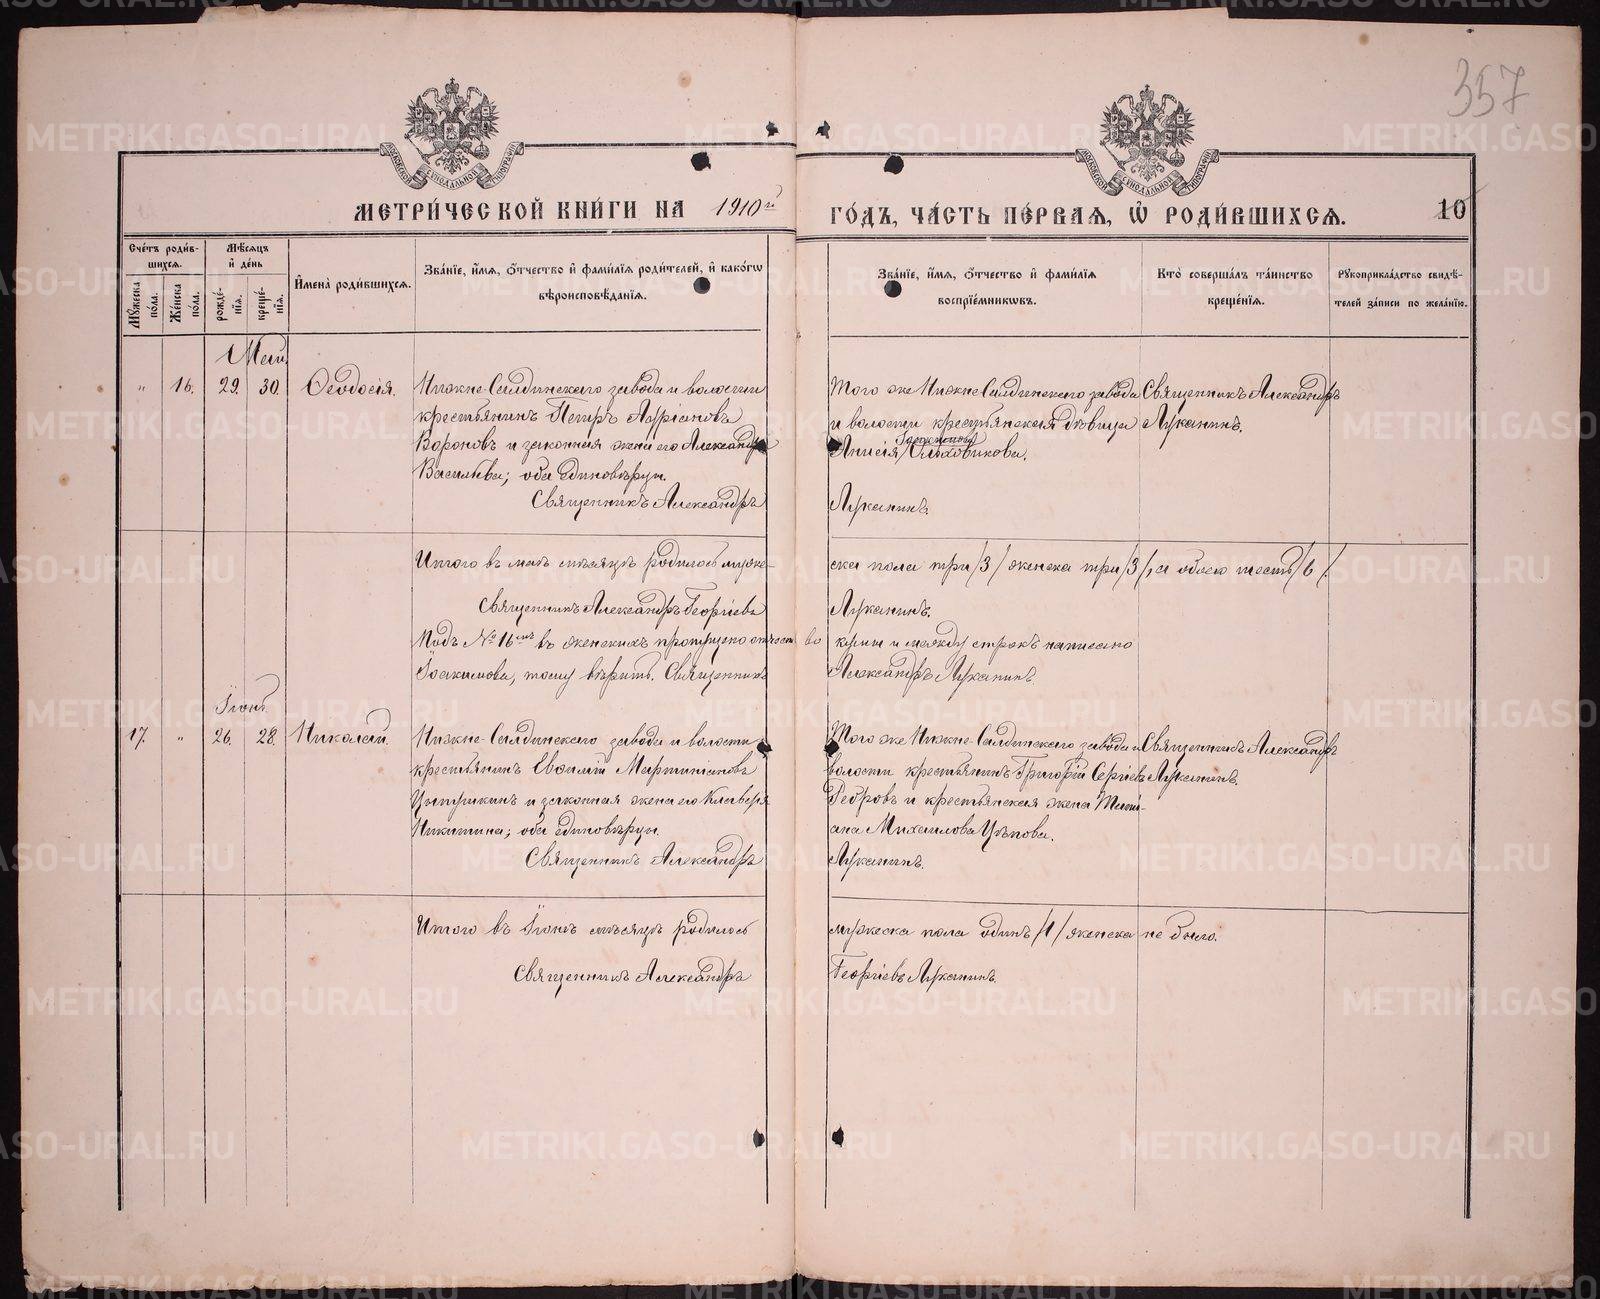 357
МОСКОВСКОЙ СѴНОДАЛЬНОЙ ТИПОГРАФІИ
МОСКОВСКОЙ СѴНОДАЛЬНОЙ ТИПОГРАФІИ
МЕТРИ́ЧЕСКОЙ КНИ́ГИ НА 1910й ГО́ДЪ, ЧА́СТЬ ПЕ́РВАЯ, Ѡ РОДИ́ВШИХСЯ. 10
Сче́тъ роди́вшихся.
Мѣ́сяцъ и де́нь
Мꙋ́жеска по́ла.
Же́нска по́ла.
рожде́нїя.
креще́нїя.
Имена̀ роди́вшихся.
Зва́нїе, и́мя, о́тчество и фами́лїя роди́телей, и како́гѡ вѣроисповѣ́данїя.
Зва́нїе, и́мя, о́тчество и фами́лїя воспрїе́мникѡвъ.
Кто̀ соверша́лъ та́инство креще́нїя.
Рꙋкоприкла́дство свидѣ́телей за́писи по жела́нїю.
Май.
" 16. 29. 30. Ѳеодосія.
Нижне-Салдинскаго завода и волости
крестьянинъ Петръ Адріановъ
Вороновъ и законная жена его Александра
Васильева; оба единовѣрцы.
Священникъ Александръ
Того же Нижне-Салдинскаго завода
и волости крестьянская дѣвица
Іоакимова
Анисія Ольховикова.
Луканинъ.
Священникъ Александръ
Луканинъ.
Итого въ маѣ мѣсяцѣ родилось муже-
ска пола три /3/ женска три /3/, а обоего шесть /6/.
Священникъ Александръ Георгіевъ
Луканинъ.
Подъ № 16мъ въ женскихъ пропущено отчество
кумы и между строкъ написано
Іоакимова, тому вѣрить. Священникъ
Александръ Луканинъ.
Іюнь.
17. " 26. 28. Николай.
Нижне-Салдинскаго завода и волости
крестьянинъ Евѳимій Мартиніановъ
Цыпушкинъ и законная жена его Клавдія
Никитина; оба единовѣрцы.
Священникъ Александръ
Того же Нижне-Салдинскаго завода и
волости крестьянинъ Григорій Сергіевъ
Ѳедровъ и крестьянская жена Тати-
ана Михаилова Цѣпова.
Луканинъ.
Священникъ Александръ
Луканинъ.
Итого въ Іюнѣ мѣсяцѣ родилось
мужеска пола одинъ /1/ женска не было.
Священникъ Александръ
Георгіевъ Луканинъ.
METRIKI.GASO-URAL.RU